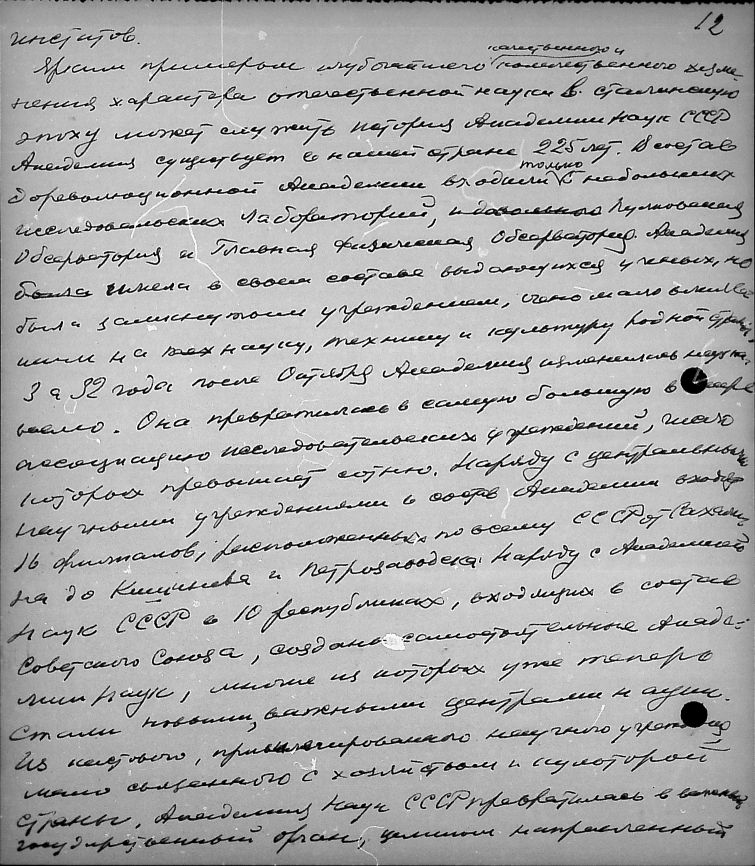 12
институтов.
качественного и
Ярким примером глубочайшего количественного изме-
нения характера отечественной науки в сталинскую
эпоху может служить история Академии Наук СССР
Академия существует в нашей стране 225 лет. В состав
только
дореволюционной Академии входили 5 небольших
исследовательских лабораторий, и довольно Пулковская
Обсерватория и Главная Физическая Обсерватория. Академия
была имела в своем составе выдающихся ученых, но
была замкнутым учреждением, очень мало влияв-
шим на науку, технику и культуру родной страны.
За 32 года после Октября Академия изменилась неузна-
ваемо. Она превратилась в самую большую в мире
ассоциацию исследовательских учреждений, число
которых превышает сотню. Наряду с центральными
научными учреждениями в состав Академии входят
16 филиалов, расположенных по всему СССР от Сахали-
на до Кишинева и Петрозаводска. Наряду с Академией
Наук СССР в 10 республиках, входящих в состав
Советского Союза, созданы самостоятельные Акаде-
мии Наук, многие из которых уже теперь
стали новыми, важными центрами науки.
Из кастового, привилегированного научного учреждения
мало связанного с хозяйством и культурой
страны, Академия Наук СССР превратилась в важный
государственный орган, целиком направленный